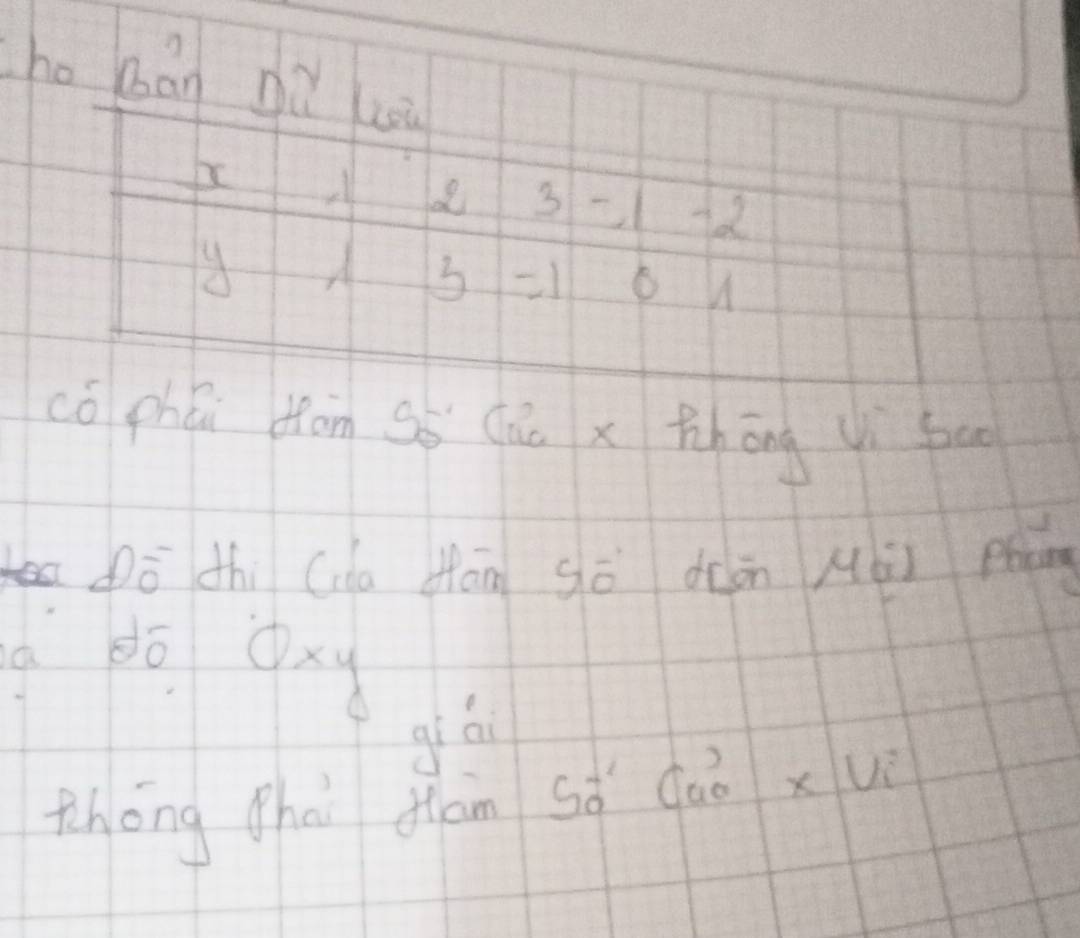 ho bản Dữ liệu
x 1 2 3 -1 -2
y 1 3 -1 0 1
có phải Hàm Số Của x không vì sao
Đồ thi Của Hàm số trên Mặt phẳng
ọa độ Oxy
giải
không phải Hàm Số Của x vì